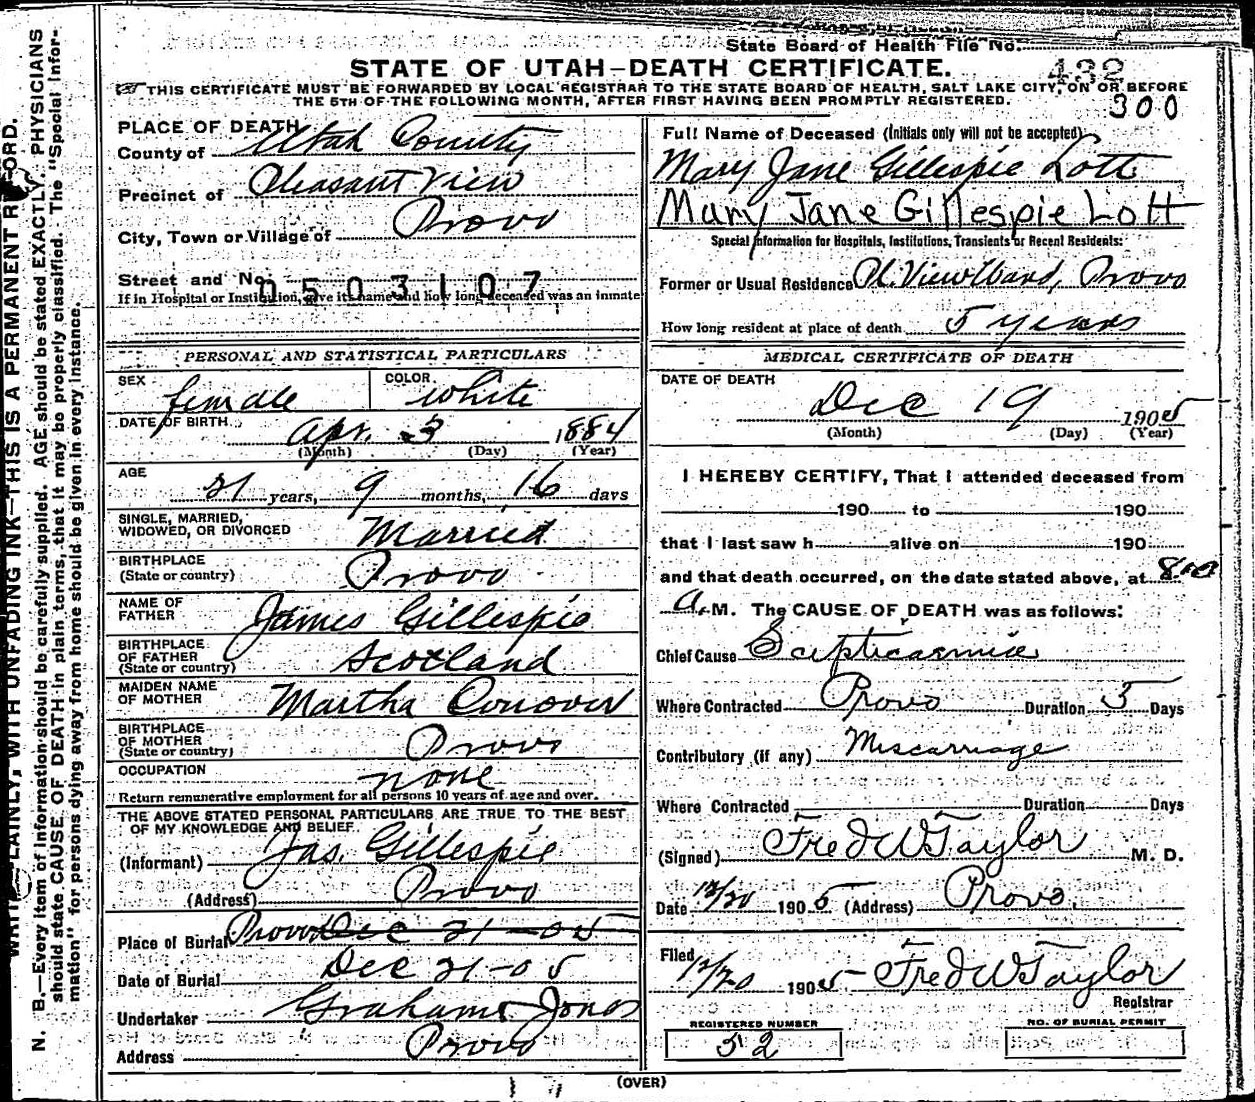 State Board of Health File No.
432
STATE OF UTAH—DEATH CERTIFICATE.
THIS CERTIFICATE MUST BE FORWARDED BY LOCAL REGISTRAR TO THE STATE BOARD OF HEALTH, SALT LAKE CITY, ON OR BEFORE
THE 5TH OF THE FOLLOWING MONTH, AFTER FIRST HAVING BEEN PROMPTLY REGISTERED.
300
PLACE OF DEATH
County of Utah County
Precinct of Pleasant View
City, Town or Village of Provo
Street and No.
0503107
If in Hospital or Institution, give its name and how long deceased was an inmate
PERSONAL AND STATISTICAL PARTICULARS
SEX female COLOR white
DATE OF BIRTH Apr. 3 1884
(Month) (Day) (Year)
AGE 21 years, 9 months, 16 days
SINGLE, MARRIED,
WIDOWED, OR DIVORCED Married
BIRTHPLACE
(State or country) Provo
NAME OF
FATHER James Gillespie
BIRTHPLACE
OF FATHER
(State or country) Scotland
MAIDEN NAME
OF MOTHER Martha Conover
BIRTHPLACE
OF MOTHER
(State or country) Provo
OCCUPATION none
Return remunerative employment for all persons 10 years of age and over.
THE ABOVE STATED PERSONAL PARTICULARS ARE TRUE TO THE BEST
OF MY KNOWLEDGE AND BELIEF.
(Informant) Jas. Gillespie
(Address) Provo
Place of Burial Provo Dec 21-05
Date of Burial Dec 21-05
Undertaker Graham Jones
Address Provo
Full Name of Deceased (Initials only will not be accepted)
Mary Jane Gillespie Lott
Mary Jane Gillespie Lott
Special Information for Hospitals, Institutions, Transients or Recent Residents:
Former or Usual Residence Pl. View Ward, Provo
How long resident at place of death 5 years
MEDICAL CERTIFICATE OF DEATH
DATE OF DEATH
Dec 19 1905
(Month) (Day) (Year)
I HEREBY CERTIFY, That I attended deceased from
190 to 190
that I last saw h alive on 190
and that death occurred, on the date stated above, at 8:00
A. M. The CAUSE OF DEATH was as follows:
Chief Cause Scepticaemia
Where Contracted Provo Duration 5 Days
Contributory (if any) Miscarriage
Where Contracted Duration Days
(Signed) Fred W Taylor M. D.
Date 12/20 1905 (Address) Provo.
Filed 12/20 1905 Fred W Taylor
Registrar
REGISTERED NUMBER
52
NO. OF BURIAL PERMIT
(OVER)
WRITE PLAINLY, WITH UNFADING INK—THIS IS A PERMANENT RECORD.
N. B.—Every item of information should be carefully supplied. AGE should be stated EXACTLY. PHYSICIANS
should state CAUSE OF DEATH in plain terms, that it may be properly classified. The "Special Infor-
mation" for persons dying away from home should be given in every instance.